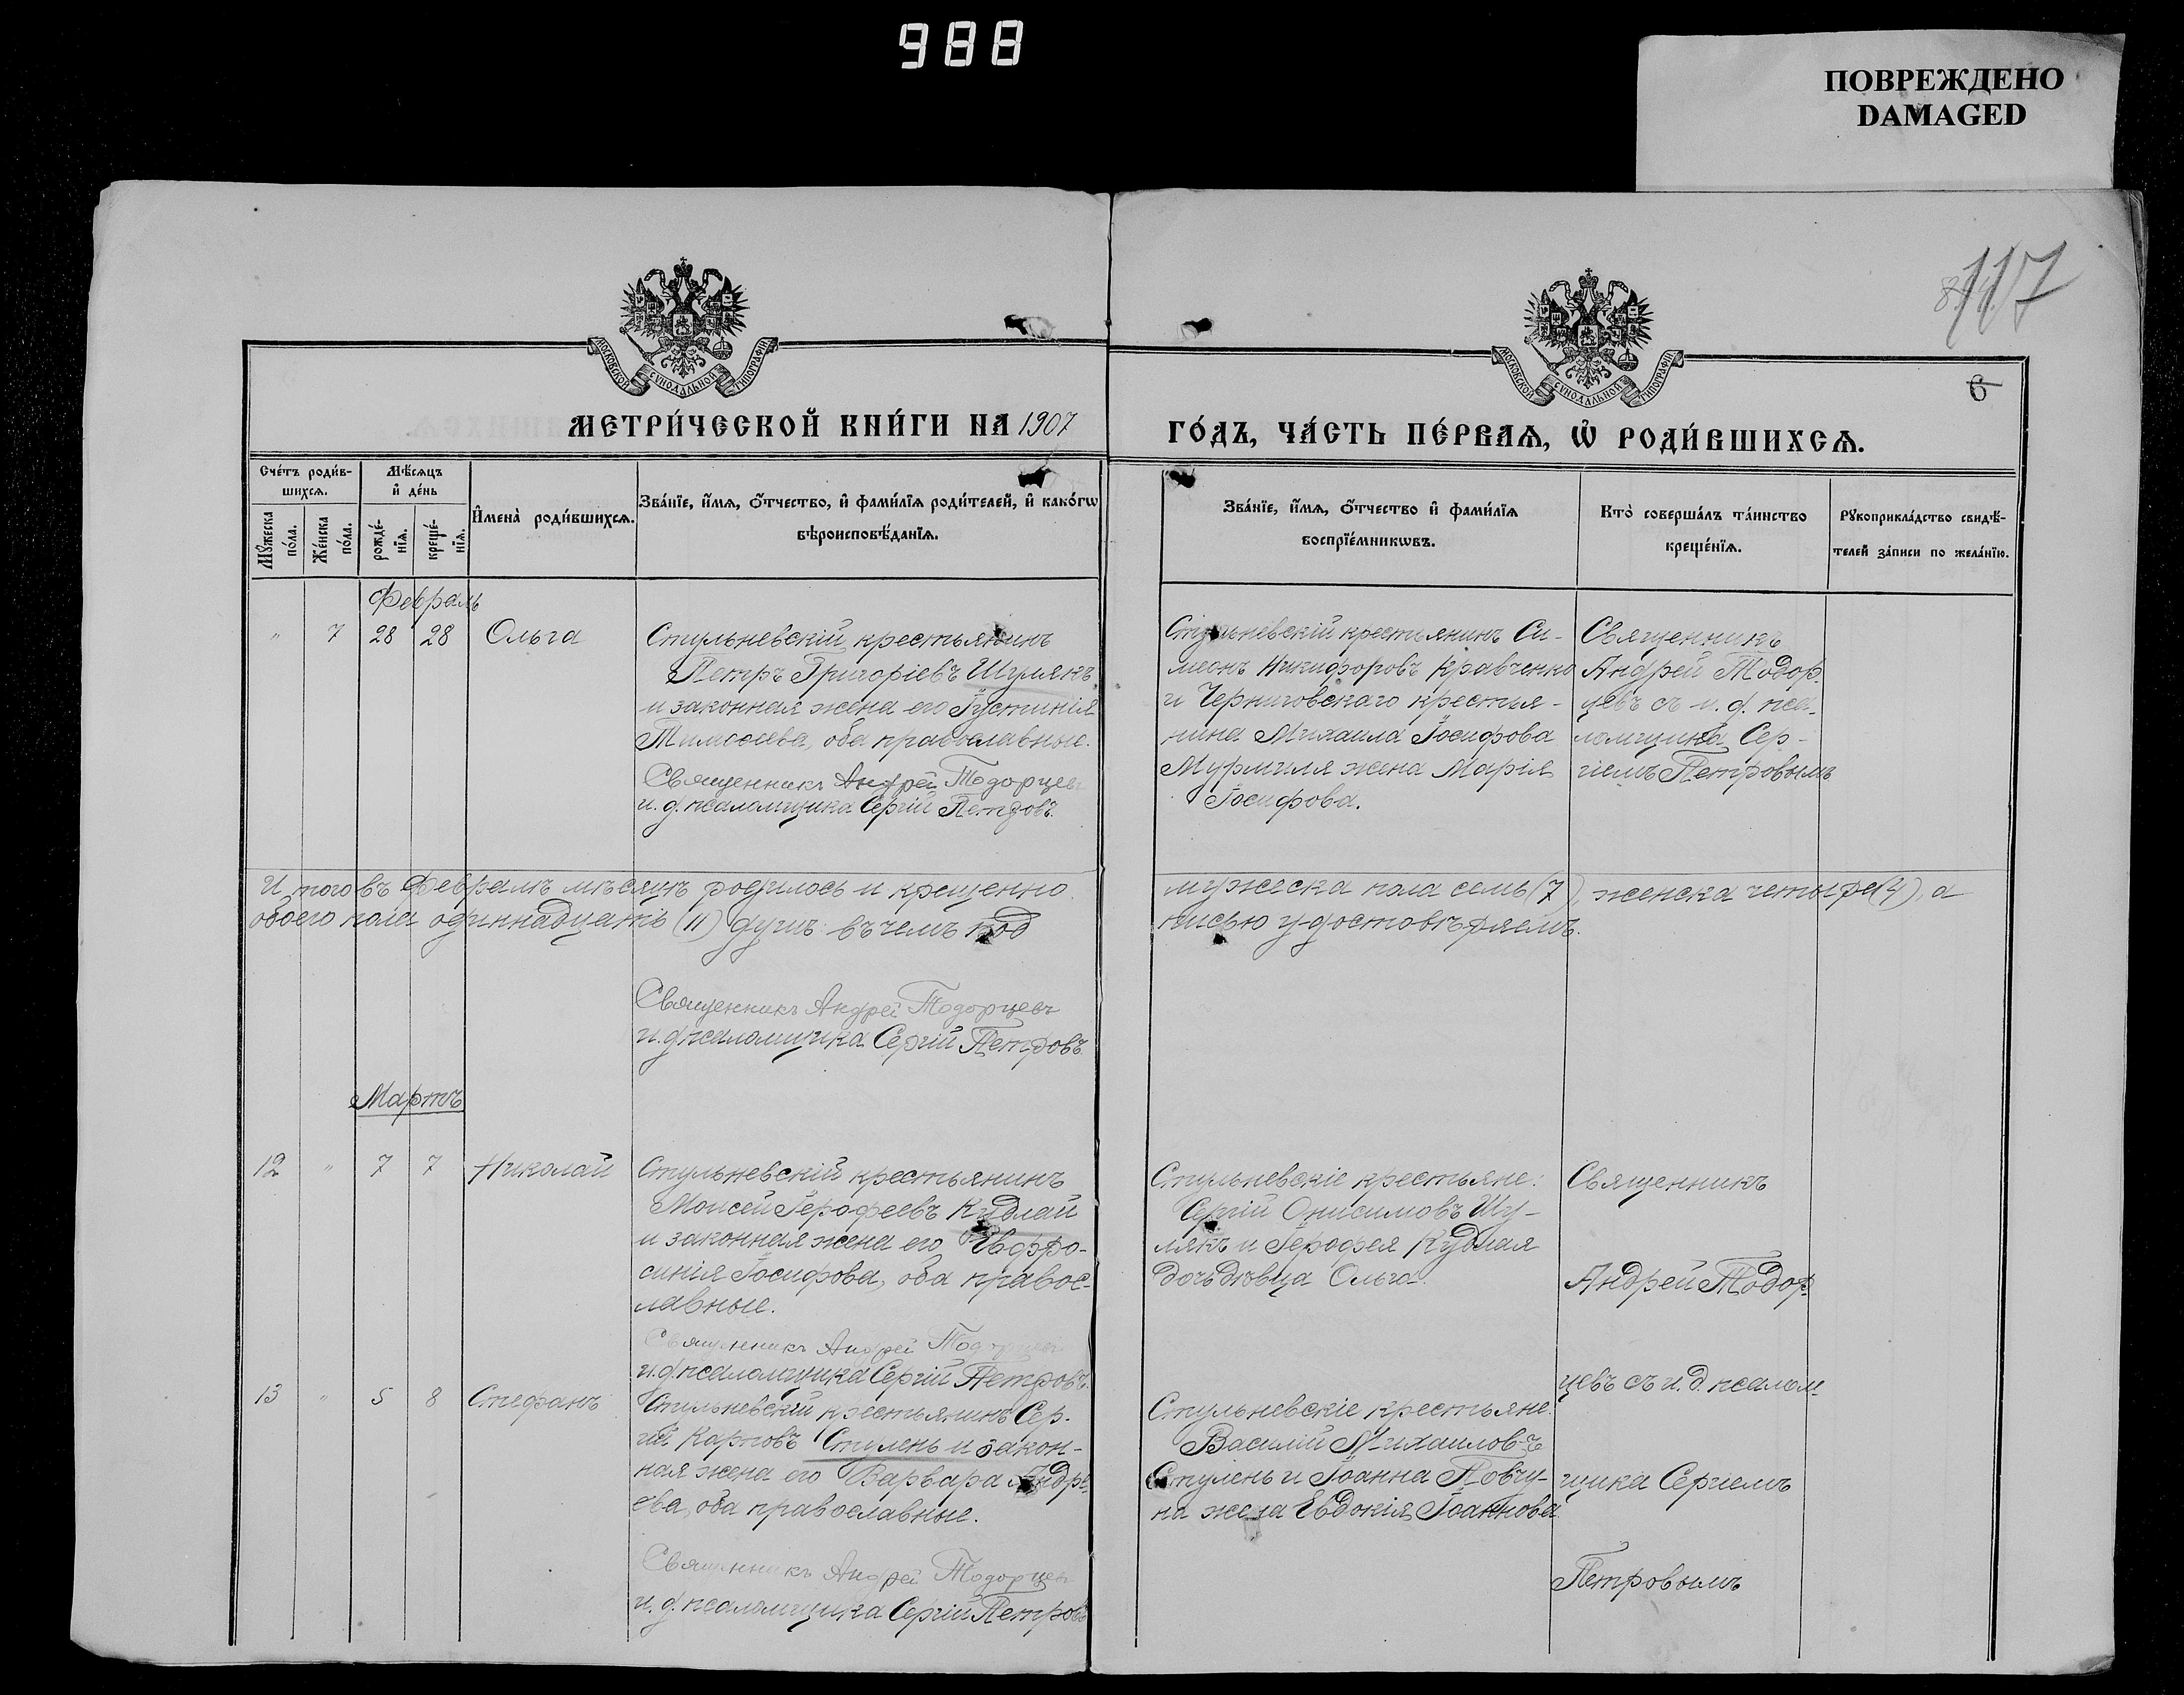 988
ПОВРЕЖДЕНО
DAMAGED
117
6
МОСКОВСКОЙ СѴНОДАЛЬНОЙ ТИПОГРАФІИ
МОСКОВСКОЙ СѴНОДАЛЬНОЙ ТИПОГРАФІИ
МЕТРИ́ЧЕСКОЙ КНИ́ГИ НА 1907
ГО́ДЪ, ЧА́СТЬ ПЕ́РВАѦ, Ѡ҆ РОДИ́ВШИХСѦ.
Сче́тъ роди́в-
шихсѧ.
Мѣ́сѧцъ
и҆ де́нь
Мꙋ́жеска
по́ла.
Же́нска
по́ла.
рожде́-
нїѧ.
креще́-
нїѧ.
И҆мена̀ роди́вшихсѧ.
Зва́нїе, и҆́мѧ, ѻ҆́тчество, и҆ фами́лїѧ роди́телей, и҆ како́гѡ
вѣроисповѣ́данїѧ.
Зва́нїе, и҆́мѧ, ѻ҆́тчество и҆ фами́лїѧ
воспрїе́мникѡвъ.
Кто̀ соверша́лъ та́инство
креще́нїѧ.
Рꙋкоприкла́дство свидѣ́-
телей за́писи по жела́нїю.
Февраль
" 7 28 28 Ольга
Стульневскій крестьянинъ
Петръ Григоріевъ Шулякъ
и законная жена его Іустинія
Тимоѳеева, оба православные.
Священникъ Андрей Тодорцевъ
и. д. псаломщика Сергій Петровъ.
Стульневскій крестьянинъ Си-
меонъ Никифоровъ Кравченко
и Черниговскаго крестья-
нина Михаила Іосифова
Мурмиля жена Марія
Іосифова.
Священникъ
Андрей Тодор-
цевъ съ и. д. пса-
ломщика Сер-
гіемъ Петровымъ
И того въ Февралѣ мѣсяцѣ родилось и крещенно
мужеска пола семь (7), женска четыре (4), а
обоего пола одиннадцать (11) душъ: въ чемъ под
писью удостовѣряемъ.
Священникъ Андрей Тодорцевъ
и. д. псаломщика Сергій Петровъ
Мартъ
12 " 7 7 Николай
Стульневскій крестьянинъ
Моисей Іерофеевъ Кудлай
и законная жена его Евфро-
синія Іосифова, оба правос-
лавные.
Священникъ Андрей Тодорцевъ
и. д. псаломщика Сергій Петровъ.
Стульневскіе крестьяне:
Сергій Онисимовъ Шу-
лякъ и Іерофея Кудлая
дочь дѣвица Ольга.
Священникъ
Андрей Тодор-
13 " 5 8 Стефанъ
Стульневскій крестьянинъ Сер-
гій Карповъ Ступень и закон-
ная жена его Варвара Андре-
ева, оба православные.
Священникъ Андрей Тодорцевъ
и. д. псаломщика Сергій Петровъ
Стульневскіе крестьяне:
Василій Михаиловъ
Ступень и Іоанна Повчу-
на жена Евдокія Іоаннова
цевъ съ и. д. псалом-
щика Сергіемъ
Петровымъ